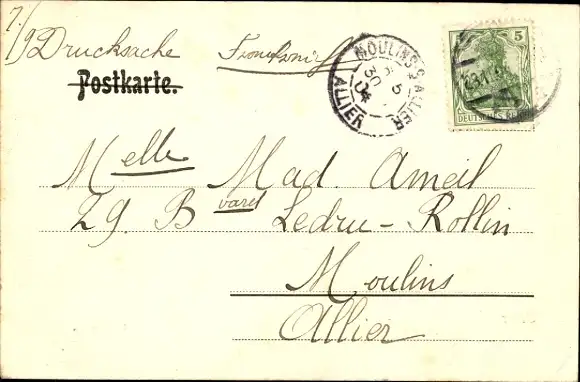 7/9 Drucksache
Postkarte.
MOULINS S ALLIER
30
ALLIER
5
DEUTSCHES REICH
Melle Mad. Ameil
29. Bvard Ledru-Rollin
Moulins
Allier